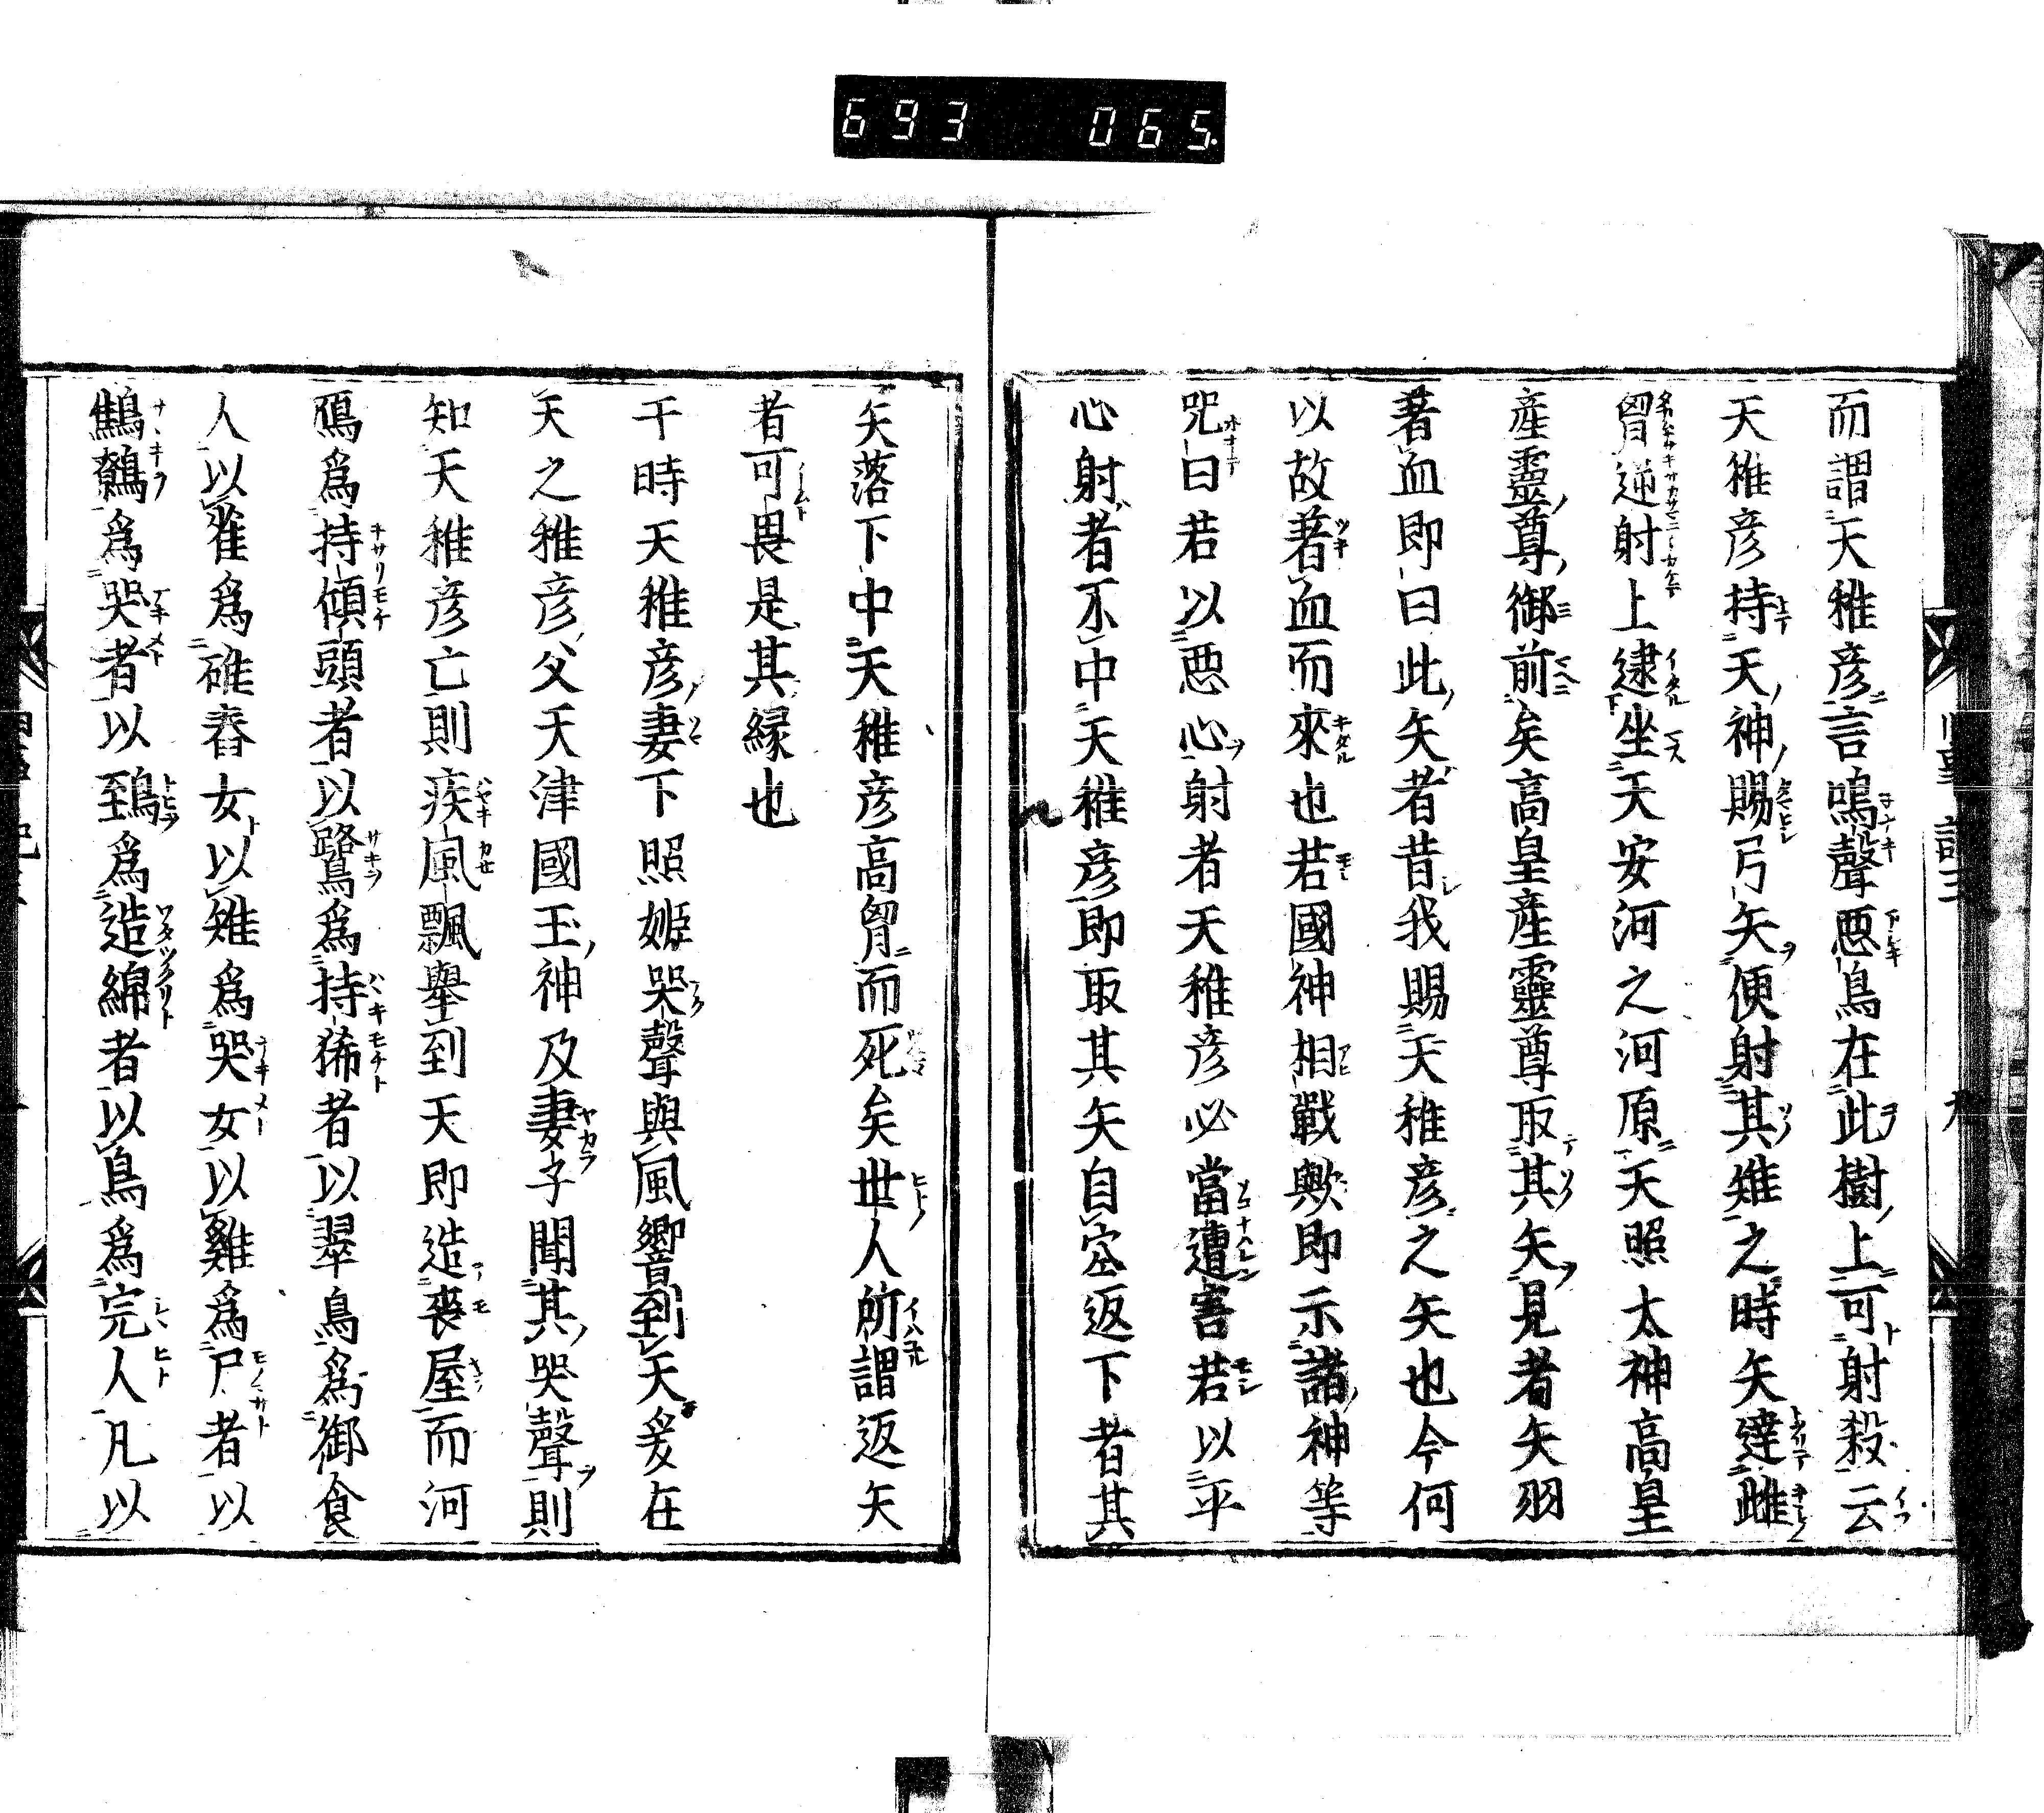 693 065
而謂天稚彦言鳴聲惡鳥在此樹上可射殺云
天稚彦持天神賜弓矢便射其雉之時矢達雌
胷逆射上逮坐天安河之河原天照太神高皇
産靈尊御前矣高皇産靈尊取其矢見者矢羽
著血即曰此矢者昔我賜天稚彦之矢也今何
以故著血而來也若國神相戰歟即示諸神等
咒曰若以惡心射者天稚彦必當遭害若以平
心射者不中天稚彦即取其矢自穴返下者其
矢落下中天稚彦高胷而死矣世人所謂返矢
者可畏是其縁也
于時天稚彦妻下照姫哭聲與風響到天爰在
天之稚彦父天津國玉神及妻子聞其哭聲則
知天稚彦亡則疾風飄舉到天即造喪屋而河
鴈爲持傾頭者以鷺爲持箒者以翠鳥爲御食
人以雀爲碓舂女以雉爲哭女以雞爲尸者以
鷦鷯爲哭者以鵄爲造綿者以烏爲完人凡以